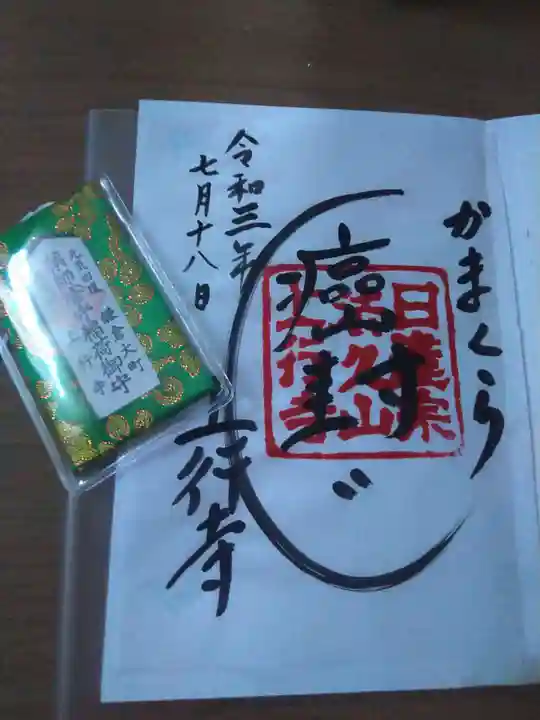 かまくら
癌封じ
日蓮宗
久山
上行寺
令和三年
七月十八日
上行寺
鎌倉大町
稲荷御守
上行寺